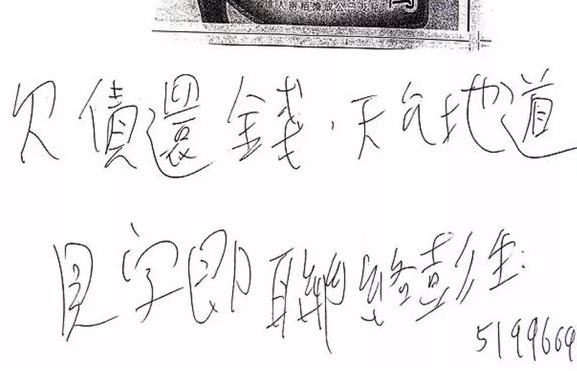 欠債還錢，天公地道
見字即聯絡彭生:
5199669